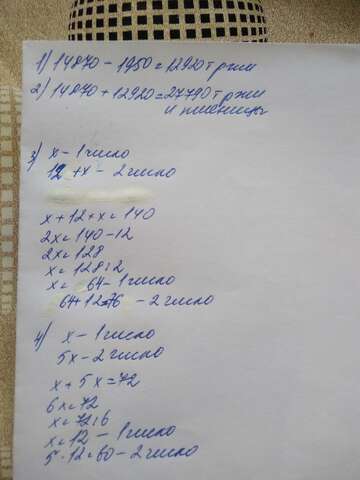 1) 14870 - 1950 = 12920 т ржи
2) 14870 + 12920 = 27790 т ржи
и пшеницы
3) x - 1 число
12 + x - 2 число
x + 12 + x = 140
2x = 140 - 12
2x = 128
x = 128 : 2
x = 64 - 1 число
64 + 12 = 76 - 2 число
4) x - 1 число
5x - 2 число
x + 5x = 72
6x = 72
x = 72 : 6
x = 12 - 1 число
5 · 12 = 60 - 2 число